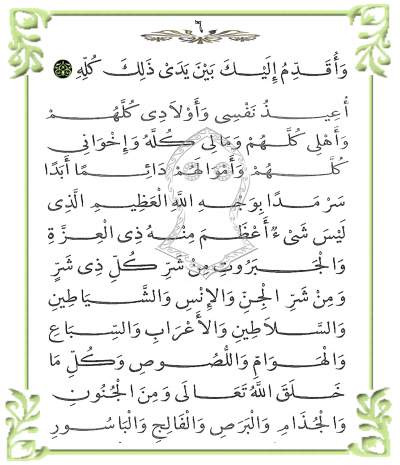 ٦
وَأُقَدِّمُ إِلَيْكَ بَيْنَ يَدَىْ ذَلِكَ كُلِّهِ
أُعِيذُ نَفْسِى وَأَوْلاَدِى كُلَّهُمْ
وَأَهْلِى كُلَّهُمْ وَمَالِى كُلَّهُ وَإِخْوَانِى
كُلَّهُمْ وَأَمْوَالَهُمْ دَائِمًا أَبَدًا
سَرْمَدًا بِوَجْهِ اللَّهِ الْعَظِيمِ الَّذِى
لَيْسَ شَىْءٌ أَعْظَمَ مِنْهُ ذِى الْعِزَّةِ
وَالْجَبَرُوتِ مِنْ شَرِّ كُلِّ ذِى شَرٍّ
وَمِنْ شَرِّ الْجِنِّ وَالإِنْسِ وَالشَّيَاطِينِ
وَالسَّلاَطِينِ وَالأَعْرَابِ وَالسِّبَاعِ
وَالْهَوَامِّ وَاللُّصُوصِ وَكُلِّ مَا
خَلَقَ اللَّهُ تَعَالَى وَمِنَ الْجُنُونِ
وَالْجُذَامِ وَالْبَرَصِ وَالْفَالِجِ وَالْبَاسُورِ